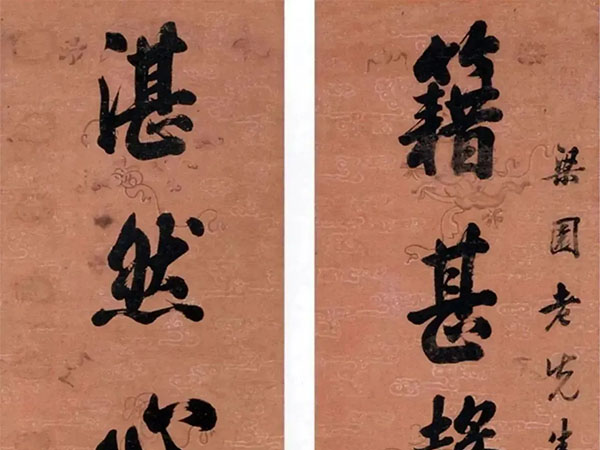 梁園老先生
籍甚
湛然